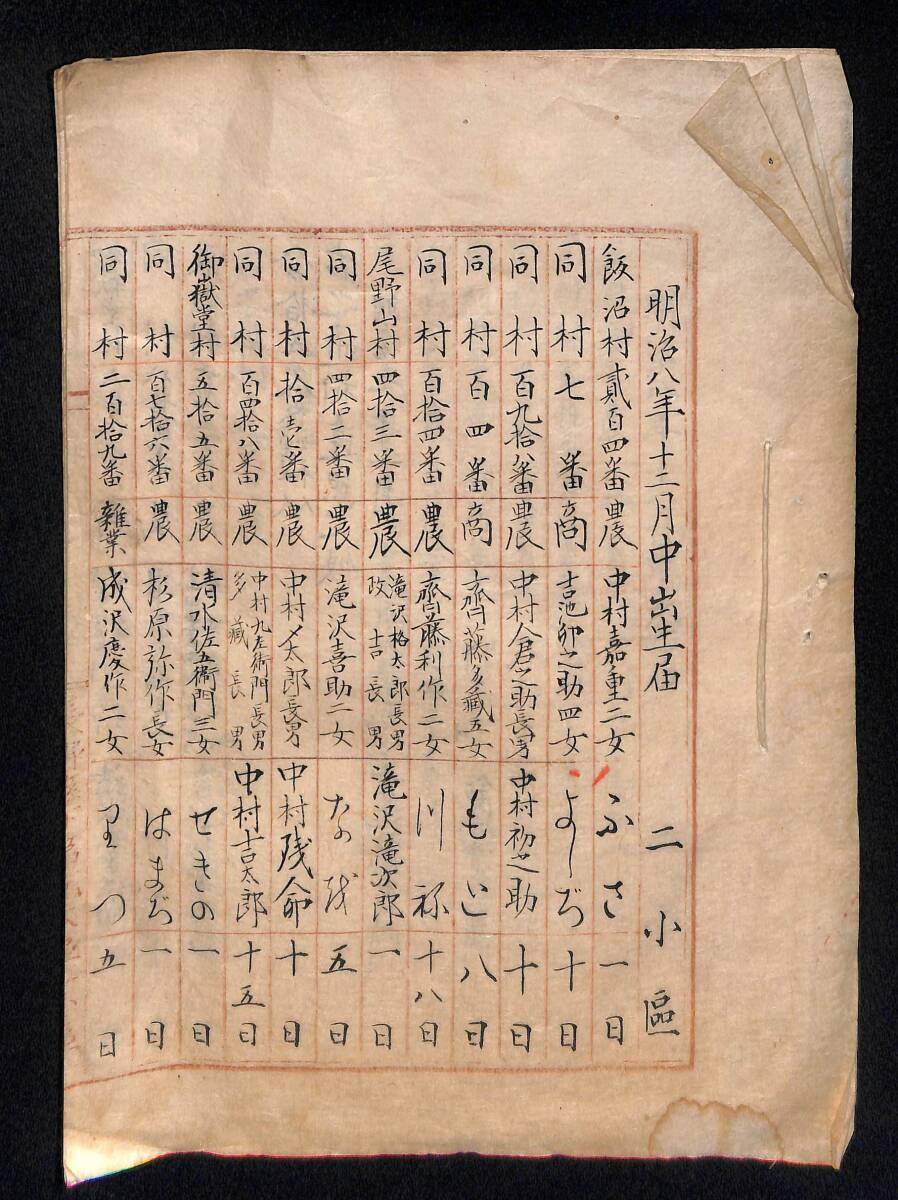 明治八年十二月中出生届 二小區
飯沼村 貳百四番 農 中村嘉重二女 ふさ 一日
同村 七番 商 吉池卯之助四女 よしぢ 十日
同村 百九拾八番 農 中村倉之助長男 中村初之助 十日
同村 百四番 商 齊藤多藏五女 もと 八日
同村 百拾四番 農 齊藤利作二女 川祢 十八日
尾野山村 四拾三番 農 滝沢格太郎長男政吉長男 滝沢滝次郎 一日
同村 四拾二番 農 滝沢喜助二女 なを 五日
同村 拾壱番 農 中村〆太郎長男 中村残命 十日
同村 百四拾八番 農 中村九左衛門長男多藏長男 中村吉太郎 十五日
御嶽堂村 五拾五番 農 清水佐五衛門三女 せきの 一日
同村 百七拾六番 農 杉原弥作長女 はまぢ 一日
同村 二百拾九番 雜業 成沢慶作二女 りつ 五日